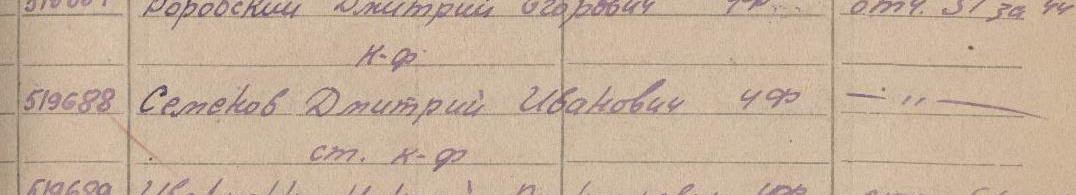 Боровский Дмитрий Егорович чф отч. 51 за 44
к-ф
519688 Семенов Дмитрий Иванович чф — " —
ст. к-ф
519689